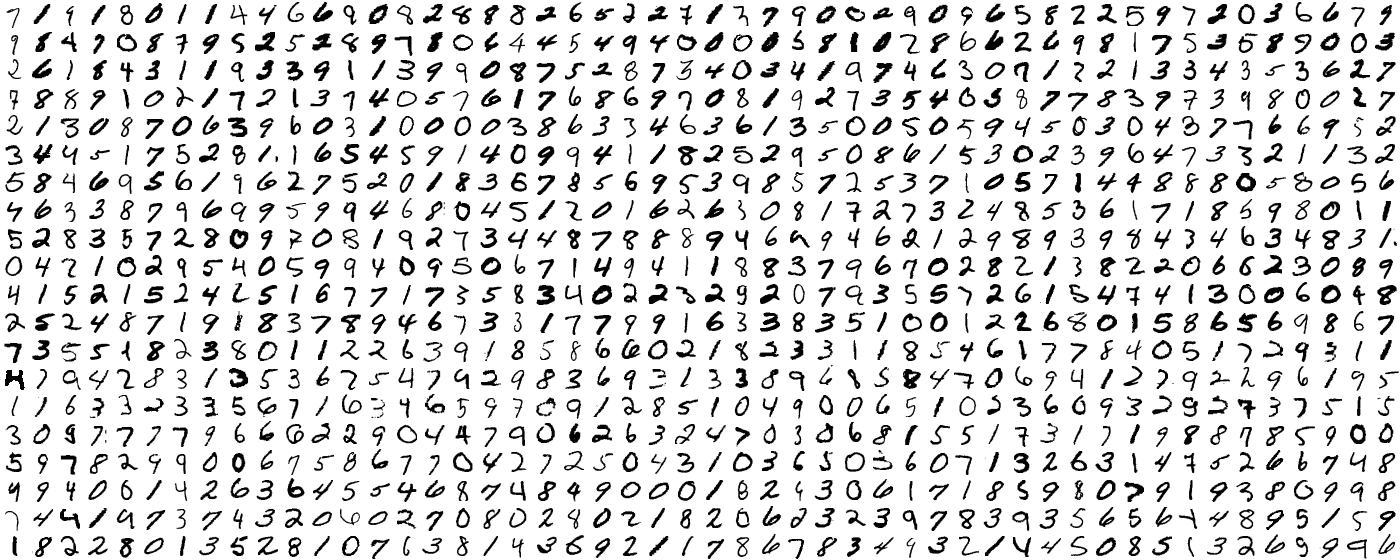 7 1 9 1 8 0 1 1 4 4 6 6 9 0 8 2 8 8 8 2 6 5 2 2 7 1 3 7 9 0 0 2 9 0 9 6 5 8 2 2 5 9 7 2 0 3 6 6 7 9
9 8 4 7 0 8 7 9 5 2 5 2 8 9 7 8 0 6 4 4 5 4 9 4 0 0 0 0 5 8 1 0 2 8 6 6 2 6 9 8 1 7 5 3 5 8 9 0 0 3
2 6 1 8 4 3 1 1 9 3 3 9 1 1 3 9 9 0 8 7 5 2 8 7 3 4 0 3 4 1 9 7 4 6 3 0 7 1 2 2 1 3 3 4 3 5 3 6 2 7
7 8 8 9 1 0 2 1 7 2 1 3 7 4 0 5 7 6 1 7 6 8 6 9 7 0 8 1 9 2 7 3 5 4 0 5 8 7 7 8 3 9 7 3 9 8 0 0 2 7
2 1 3 0 8 7 0 6 3 9 6 0 3 1 0 0 0 0 3 8 6 3 3 4 6 3 6 1 3 5 0 0 5 0 5 9 4 5 0 3 0 4 3 7 7 6 6 9 5 2
3 4 4 5 1 7 5 2 8 1 1 6 5 4 5 9 1 4 0 9 9 4 1 1 8 2 5 2 9 5 0 8 6 1 5 3 0 2 3 9 6 4 7 3 3 2 1 1 3 2
5 8 4 6 9 5 6 1 9 6 2 7 5 2 0 1 8 3 6 7 8 5 6 9 5 3 9 8 5 7 2 5 3 7 1 0 5 7 1 4 4 8 8 8 0 5 8 0 5 6
7 6 3 3 8 7 9 6 9 9 5 9 9 4 6 8 0 4 5 1 2 0 1 6 2 6 3 0 8 1 7 2 7 3 2 4 8 5 3 6 1 7 1 8 5 9 8 0 1 1
5 2 8 3 5 7 2 8 0 9 7 0 8 1 9 2 7 3 4 4 8 7 8 8 8 9 4 6 9 4 6 2 1 2 9 8 9 3 9 8 4 3 4 6 3 4 8 3 1
0 4 2 1 0 2 9 5 4 0 5 9 9 4 0 9 5 0 6 7 1 4 9 4 1 1 8 8 3 7 9 6 7 0 2 8 2 1 3 8 2 2 0 6 6 2 3 0 8 9
4 1 5 2 1 5 2 4 2 5 1 6 7 7 1 7 3 5 8 3 4 0 2 2 3 2 9 2 0 7 9 3 5 5 7 2 6 1 5 4 7 4 1 3 0 0 6 0 4 8
2 5 2 4 8 7 1 9 1 8 3 7 8 9 4 6 7 3 3 1 7 7 9 9 1 6 3 3 8 3 5 1 0 0 1 2 2 6 8 0 1 5 8 6 5 6 9 8 6 7
7 3 5 5 1 8 2 3 8 0 1 1 2 2 6 3 9 1 8 5 8 6 6 0 2 1 8 2 3 3 1 1 8 5 4 6 1 7 7 8 4 0 5 1 7 2 9 3 1 1
7 9 4 2 8 3 1 3 5 3 6 7 5 4 7 9 2 9 8 3 6 9 3 1 3 3 8 9 6 8 5 8 4 7 0 6 9 4 1 2 7 9 2 2 9 6 1 9 5
1 1 6 3 3 2 3 3 5 6 7 1 6 3 4 6 5 9 7 0 9 1 2 8 5 1 0 4 9 0 0 6 5 1 0 2 3 6 0 9 3 2 9 2 7 3 7 5 1 5
3 0 9 7 7 7 7 9 6 6 6 2 2 9 0 4 4 7 9 0 6 2 6 3 2 4 7 0 3 0 6 8 1 5 5 1 7 3 1 7 1 9 8 8 7 8 5 9 0 0
5 9 7 8 2 9 9 0 0 6 7 5 8 6 7 7 0 4 2 7 2 5 0 4 3 1 0 3 6 5 0 3 6 0 7 1 3 2 6 3 1 4 7 5 2 6 6 7 4 8
9 9 4 0 0 1 4 2 6 3 6 4 5 5 4 6 8 7 4 8 4 9 0 0 0 1 8 2 4 3 0 6 1 7 1 8 5 9 8 0 7 9 1 9 3 8 0 9 9 8
7 4 4 1 9 7 3 7 4 3 2 0 6 0 2 7 0 8 0 2 8 0 2 1 8 2 0 6 2 3 2 3 9 7 8 3 9 3 5 6 5 6 7 4 8 9 5 1 5 9
1 8 2 2 8 0 1 3 5 2 8 1 0 7 6 3 8 1 4 3 6 9 2 1 7 8 6 7 8 3 4 9 3 2 1 4 4 5 0 8 5 1 3 2 6 9 9 9 6